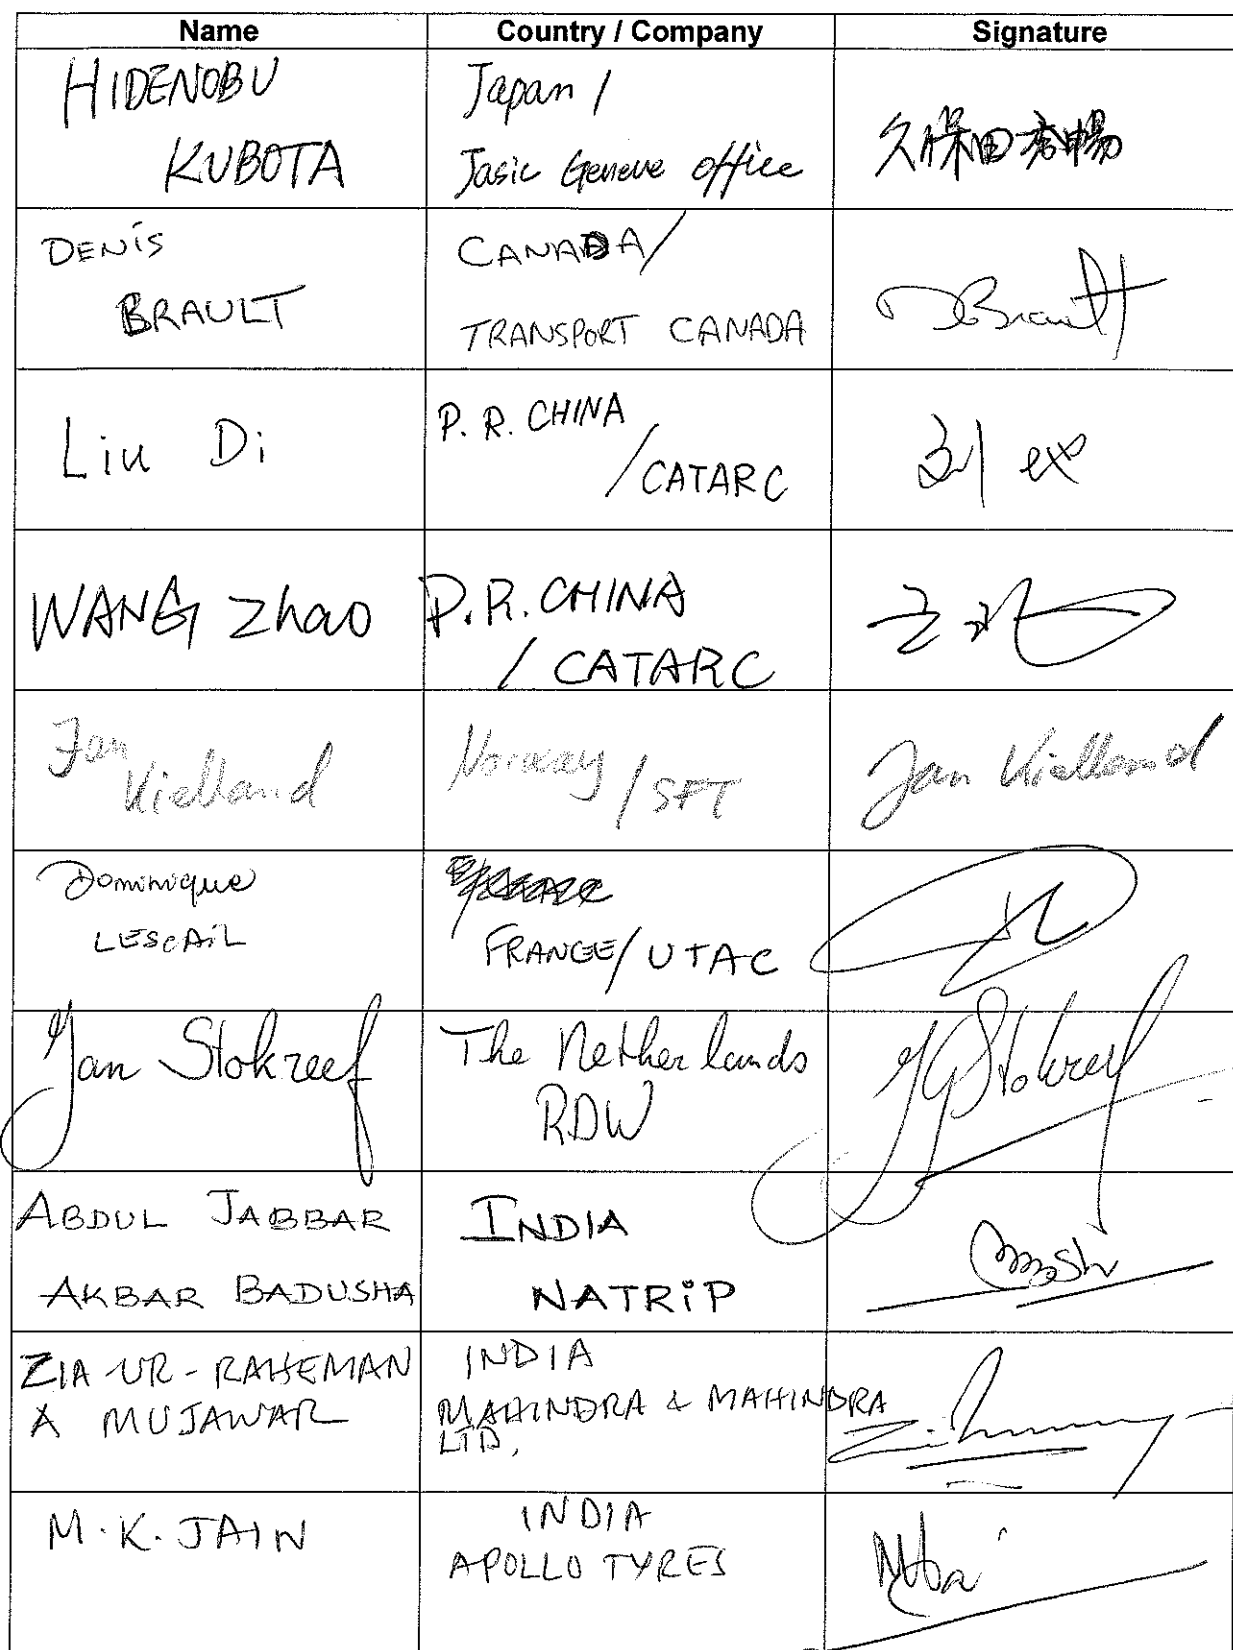 Name Country / Company Signature
HIDENOBU
KUBOTA
Japan /
Jasic Geneve office
久保田秀暢
DENiS
BRAULT
CANADA/
TRANSPORT CANADA
DBrault
Liu Di
P. R. CHINA
/CATARC
刘
WANG Zhao
P.R. CHINA
/ CATARC
王
Jan
Kielland
Norway / SFT
Jan Kielland
Dominique
LESCAiL
FRANCE/UTAC
Jan Stokreef
The Netherlands
RDW
JGStokreef
ABDUL JABBAR
AKBAR BADUSHA
INDIA
NATRiP
ZIA-UR-RAHEMAN
A MUJAWAR
INDIA
MAHINDRA & MAHINDRA
LTD,
M.K. JAIN
INDIA
APOLLO TYRES